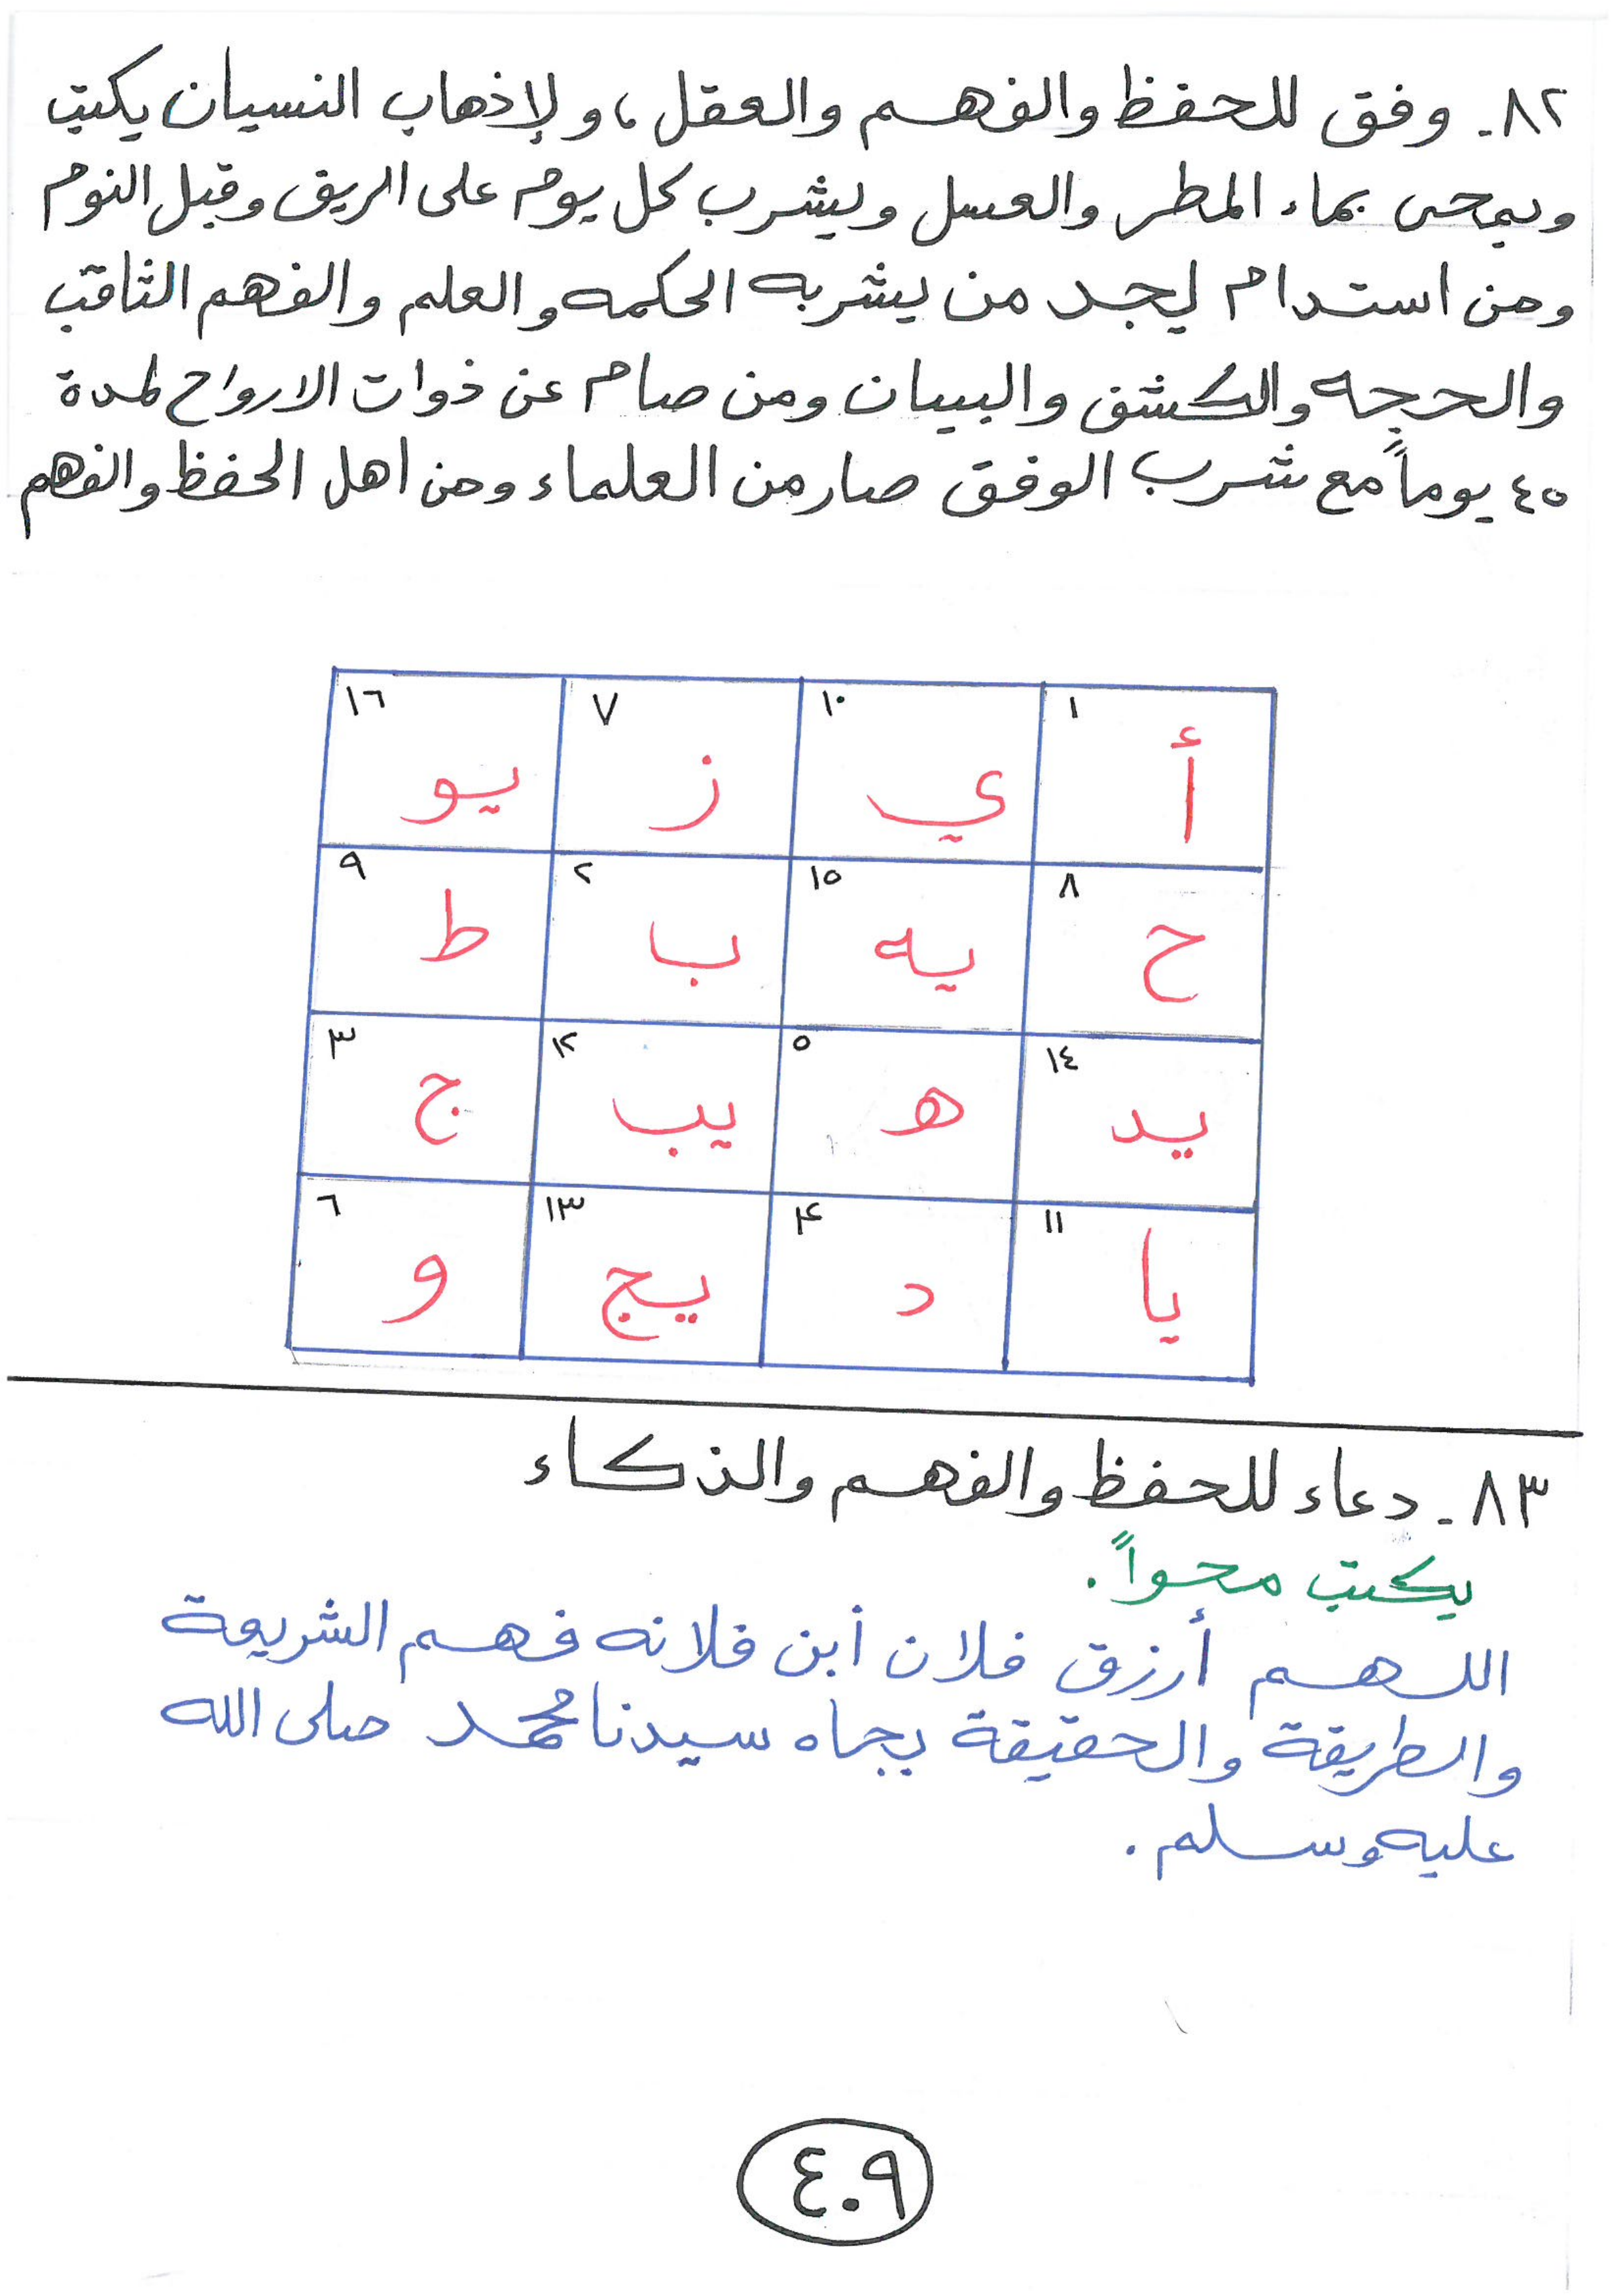 ٨٢- وفق للحفظ والفهم والعقل، ولإذهاب النسيان يكتب
ويمحى بماء المطر والعسل ويشرب كل يوم على الريق وقبل النوم
ومن استدام ليجد من يشربه الحكمه والعلم والفهم الثاقب
والحرجه والكشف والبيان ومن صام عن ذوات الارواح لمدة
٤٥ يوماً مع شرب الوفق صار من العلماء ومن اهل الحفظ والفهم
١ ١٠ ٧ ١٦
أ ي ز يو
٨ ١٥ ٢ ٩
ح يه ب ط
١٤ ٥ ١٢ ٣
يد ه يب ج
١١ ۴ ١٣ ٦
يا د يج و
٨٣- دعاء للحفظ والفهم والذكاء
يكتب محواً.
اللهم أرزق فلان أبن فلانه فهم الشريعة
والطريقة والحقيقة بجاه سيدنا محمد صلى الله
عليه وسلم.
٤٠٩